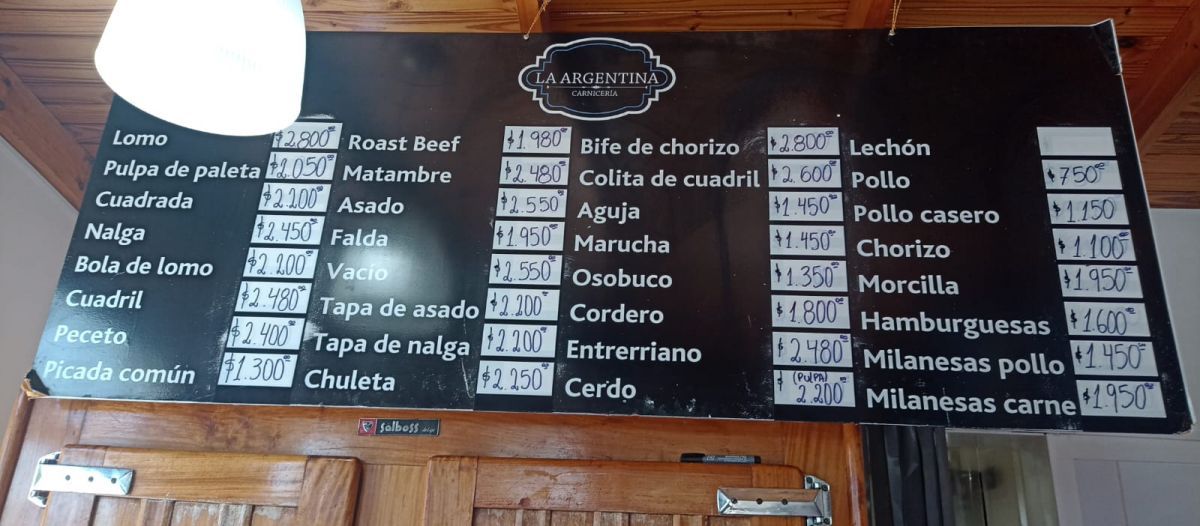 LA ARGENTINA
CARNICERÍA
Lomo $2.800
Pulpa de paleta $2.050
Cuadrada $2.200
Nalga $2.450
Bola de lomo $2.200
Cuadril $2.480
Peceto $2.400
Picada común $1.300
Roast Beef $1.980
Matambre $2.480
Asado $2.550
Falda $1.950
Vacío $2.550
Tapa de asado $2.200
Tapa de nalga $2.200
Chuleta $2.250
Bife de chorizo $2.800
Colita de cuadril $2.600
Aguja $1.450
Marucha $1.450
Osobuco $1.350
Cordero $1.800
Entrerriano $2.480
Cerdo $ (PULPA) 2.200
Lechón
Pollo $750
Pollo casero $1.150
Chorizo $1.100
Morcilla $1.950
Hamburguesas $1.600
Milanesas pollo $1.450
Milanesas carne $1.950
salboss